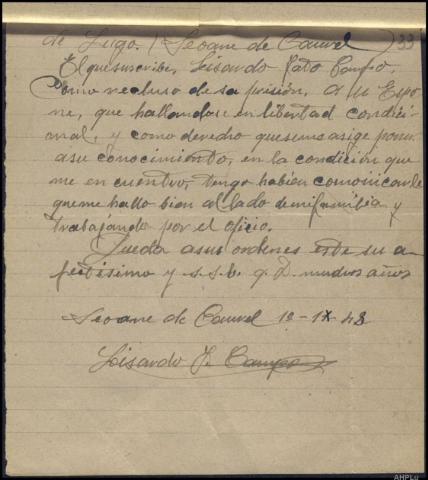 de Lugo. (Seoane de Caurel) 33
El que suscribe, Lisardo Pato Campo,
Como recluso de su prisión, a U Espo
ne, que hallandose en libertad condici
onal, y como derecho que se me asige poner
a su conocimiento, en la condición que
me en cuentro, tengo habien comonicarle
que me hallo bien al lado de mi familia y
trabajando por el oficio.
Queda a sus ordenes este su a
fectisimo y s.s.s. q D. muchos años
Seoane de Caurel 12-IX-48
Lisardo P. Campo
AHPLu